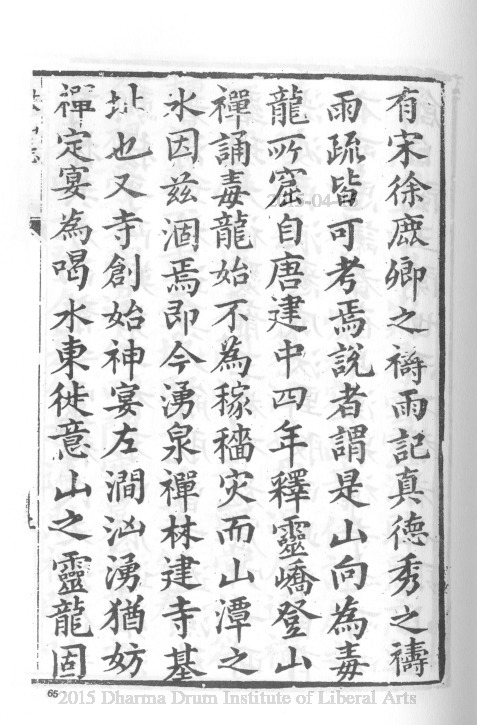 有宋徐鹿卿之禱雨記真德秀之禱
雨疏皆可考焉說者謂是山向為毒
龍所窟自唐建中四年釋靈嶠登山
禪誦毒龍始不為稼穡灾而山潭之
水因兹涸焉即今湧泉禪林建寺基
址也又寺創始神宴左澗汹湧猶妨
禪定宴為喝水東徙意山之靈龍固
65
2015 Dharma Drum Institute of Liberal Arts